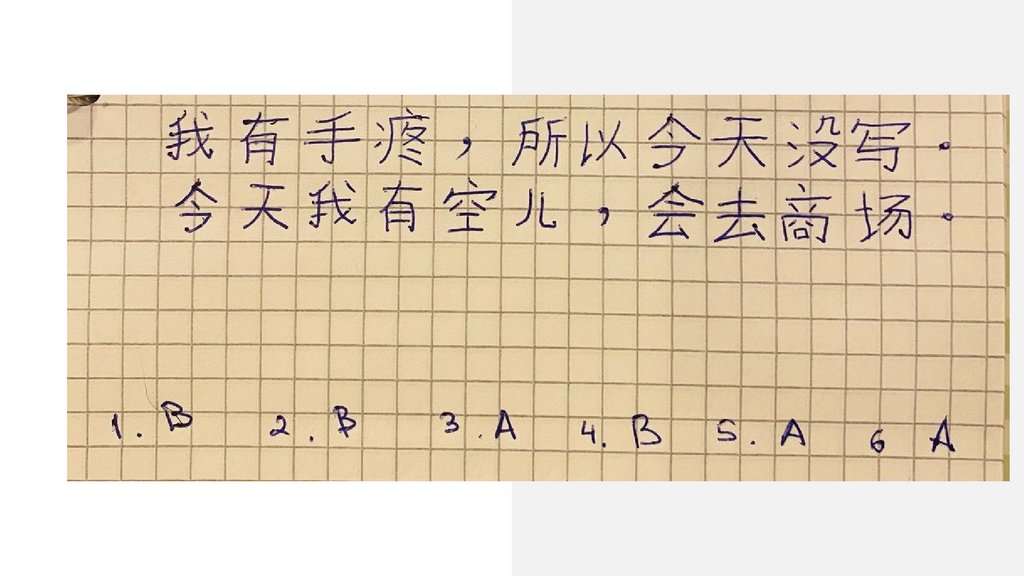 我有手疼，所以今天没写.
今天我有空儿，会去商场.
1. B 2. B 3. A 4. B 5. A 6 A